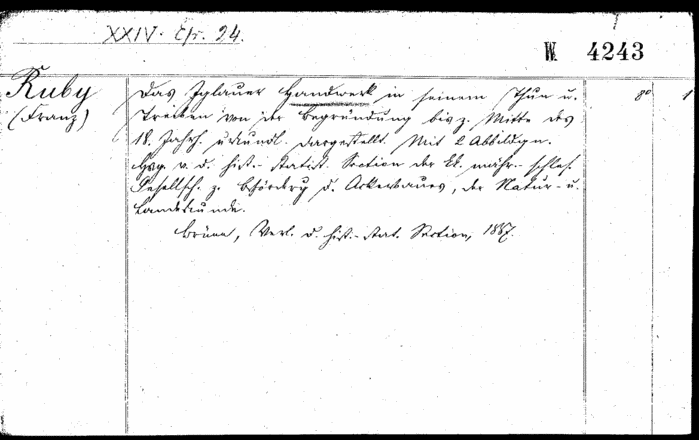 XXIV. Chr. 24.
W. 4243
Ruby
(Franz)
Das Iglauer Handwerk in seinem Thun u. 8° 1
Treiben von der Begründung bis z. Mitte des
18. Jahrh. urkundl. dargestellt. Mit 2 Abbildgn.
Hsg. v. d. hist.-statist. Section der kk. mähr.-schles.
Gesellsch. z. Bförderg d. Ackerbaues, der Natur- u.
Landeskunde.
Brünn, Verl. d. hist.-stat. Section, 1887.